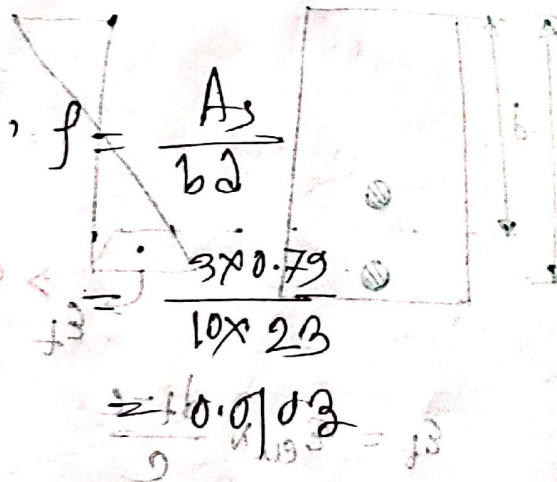 , ρ = As / bd
= 3×0.79 / 10× 23
= 0.0103